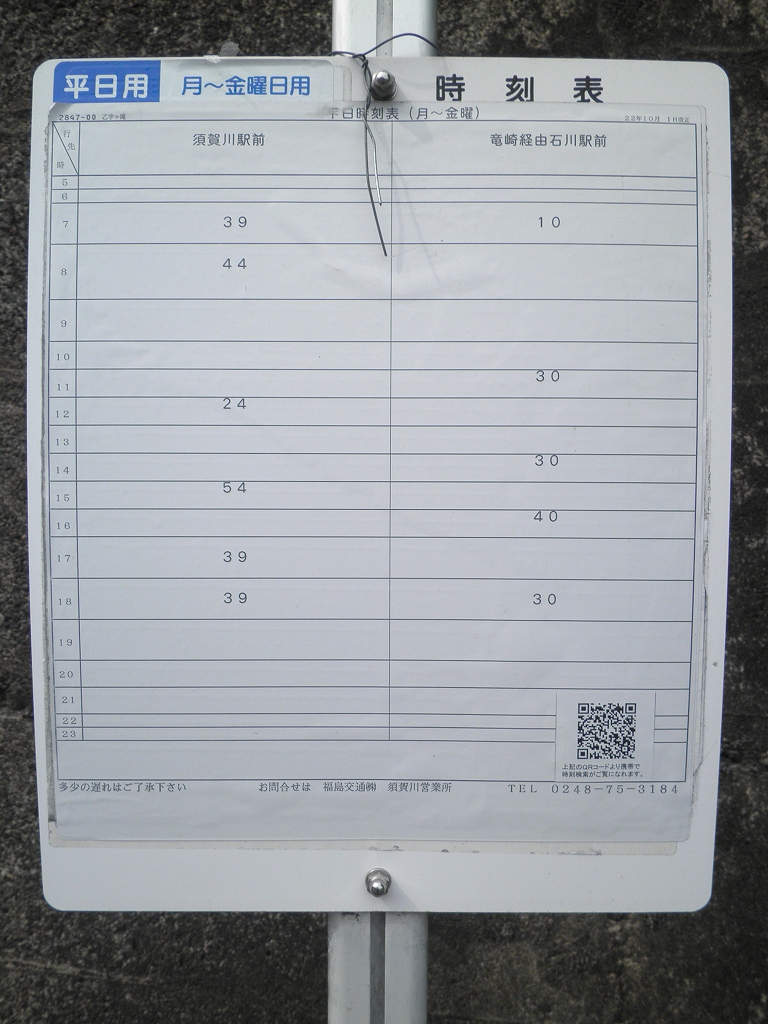 平日用 月～金曜日用 時刻表
平日時刻表（月～金曜）
2847-00 乙字ヶ滝 22年10月 1日改正
行先 須賀川駅前 竜崎経由石川駅前
時
5
6
7 39 10
8 44
9
10
11 30
12 24
13
14 30
15 54
16 40
17 39
18 39 30
19
20
21
22
23
上記のQRコードより携帯で
時刻検索がご覧になれます。
多少の遅れはご了承下さい お問合せは 福島交通㈱ 須賀川営業所 TEL 0248-75-3184